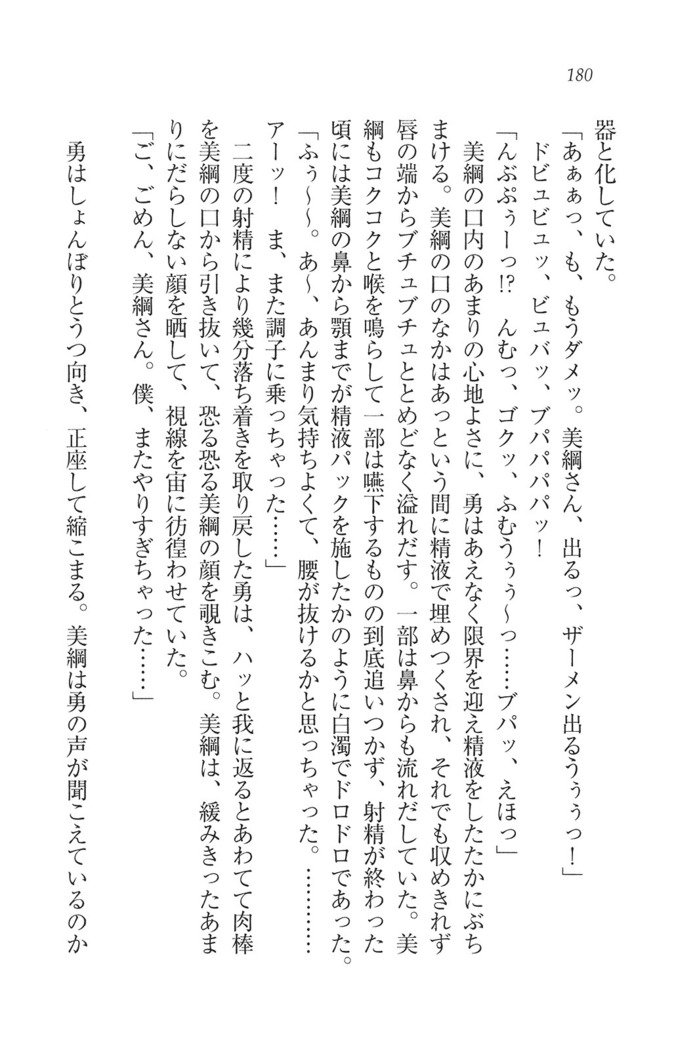 180
器と化していた。
「あぁぁっ、も、もうダメッ。美綱さん、出るっ、ザーメン出るうぅぅっ!」
ドビュビュッ、ビュバッ、ブパパパパッ!
「んぶぷぅーっ!? んむっ、ゴクッ、ふむうぅぅ〜っ……ブパッ、えほっ」
美綱の口内のあまりの心地よさに、勇はあえなく限界を迎え精液をしたたかにぶち
まける。美綱の口のなかはあっという間に精液で埋めつくされ、それでも収めきれず
唇の端からブチュブチュととめどなく溢れだす。一部は鼻からも流れだしていた。美
綱もコクコクと喉を鳴らして一部は嚥下するものの到底追いつかず、射精が終わった
頃には美綱の鼻から顎までが精液パックを施したかのように白濁でドロドロであった。
「ふぅ〜〜。あ〜、あんまり気持ちよくて、腰が抜けるかと思っちゃった。…………
アーッ! ま、また調子に乗っちゃった……」
二度の射精により幾分落ち着きを取り戻した勇は、ハッと我に返るとあわてて肉棒
を美綱の口から引き抜いて、恐る恐る美綱の顔を覗きこむ。美綱は、緩みきったあま
りにだらしない顔を晒して、視線を宙に彷徨わせていた。
「ご、ごめん、美綱さん。僕、またやりすぎちゃった……」
勇はしょんぼりとうつ向き、正座して縮こまる。美綱は勇の声が聞こえているのか